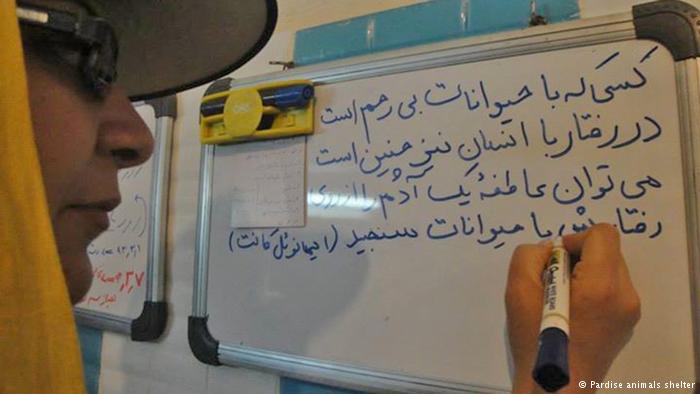 کسی که با حیوانات بی رحم است
در رفتار با انسان نیز چنین است
می توان عاطفهٔ یک آدم را از روی
رفتارش با حیوانات سنجید (ایمانوئل کانت)
© Pardise animals shelter